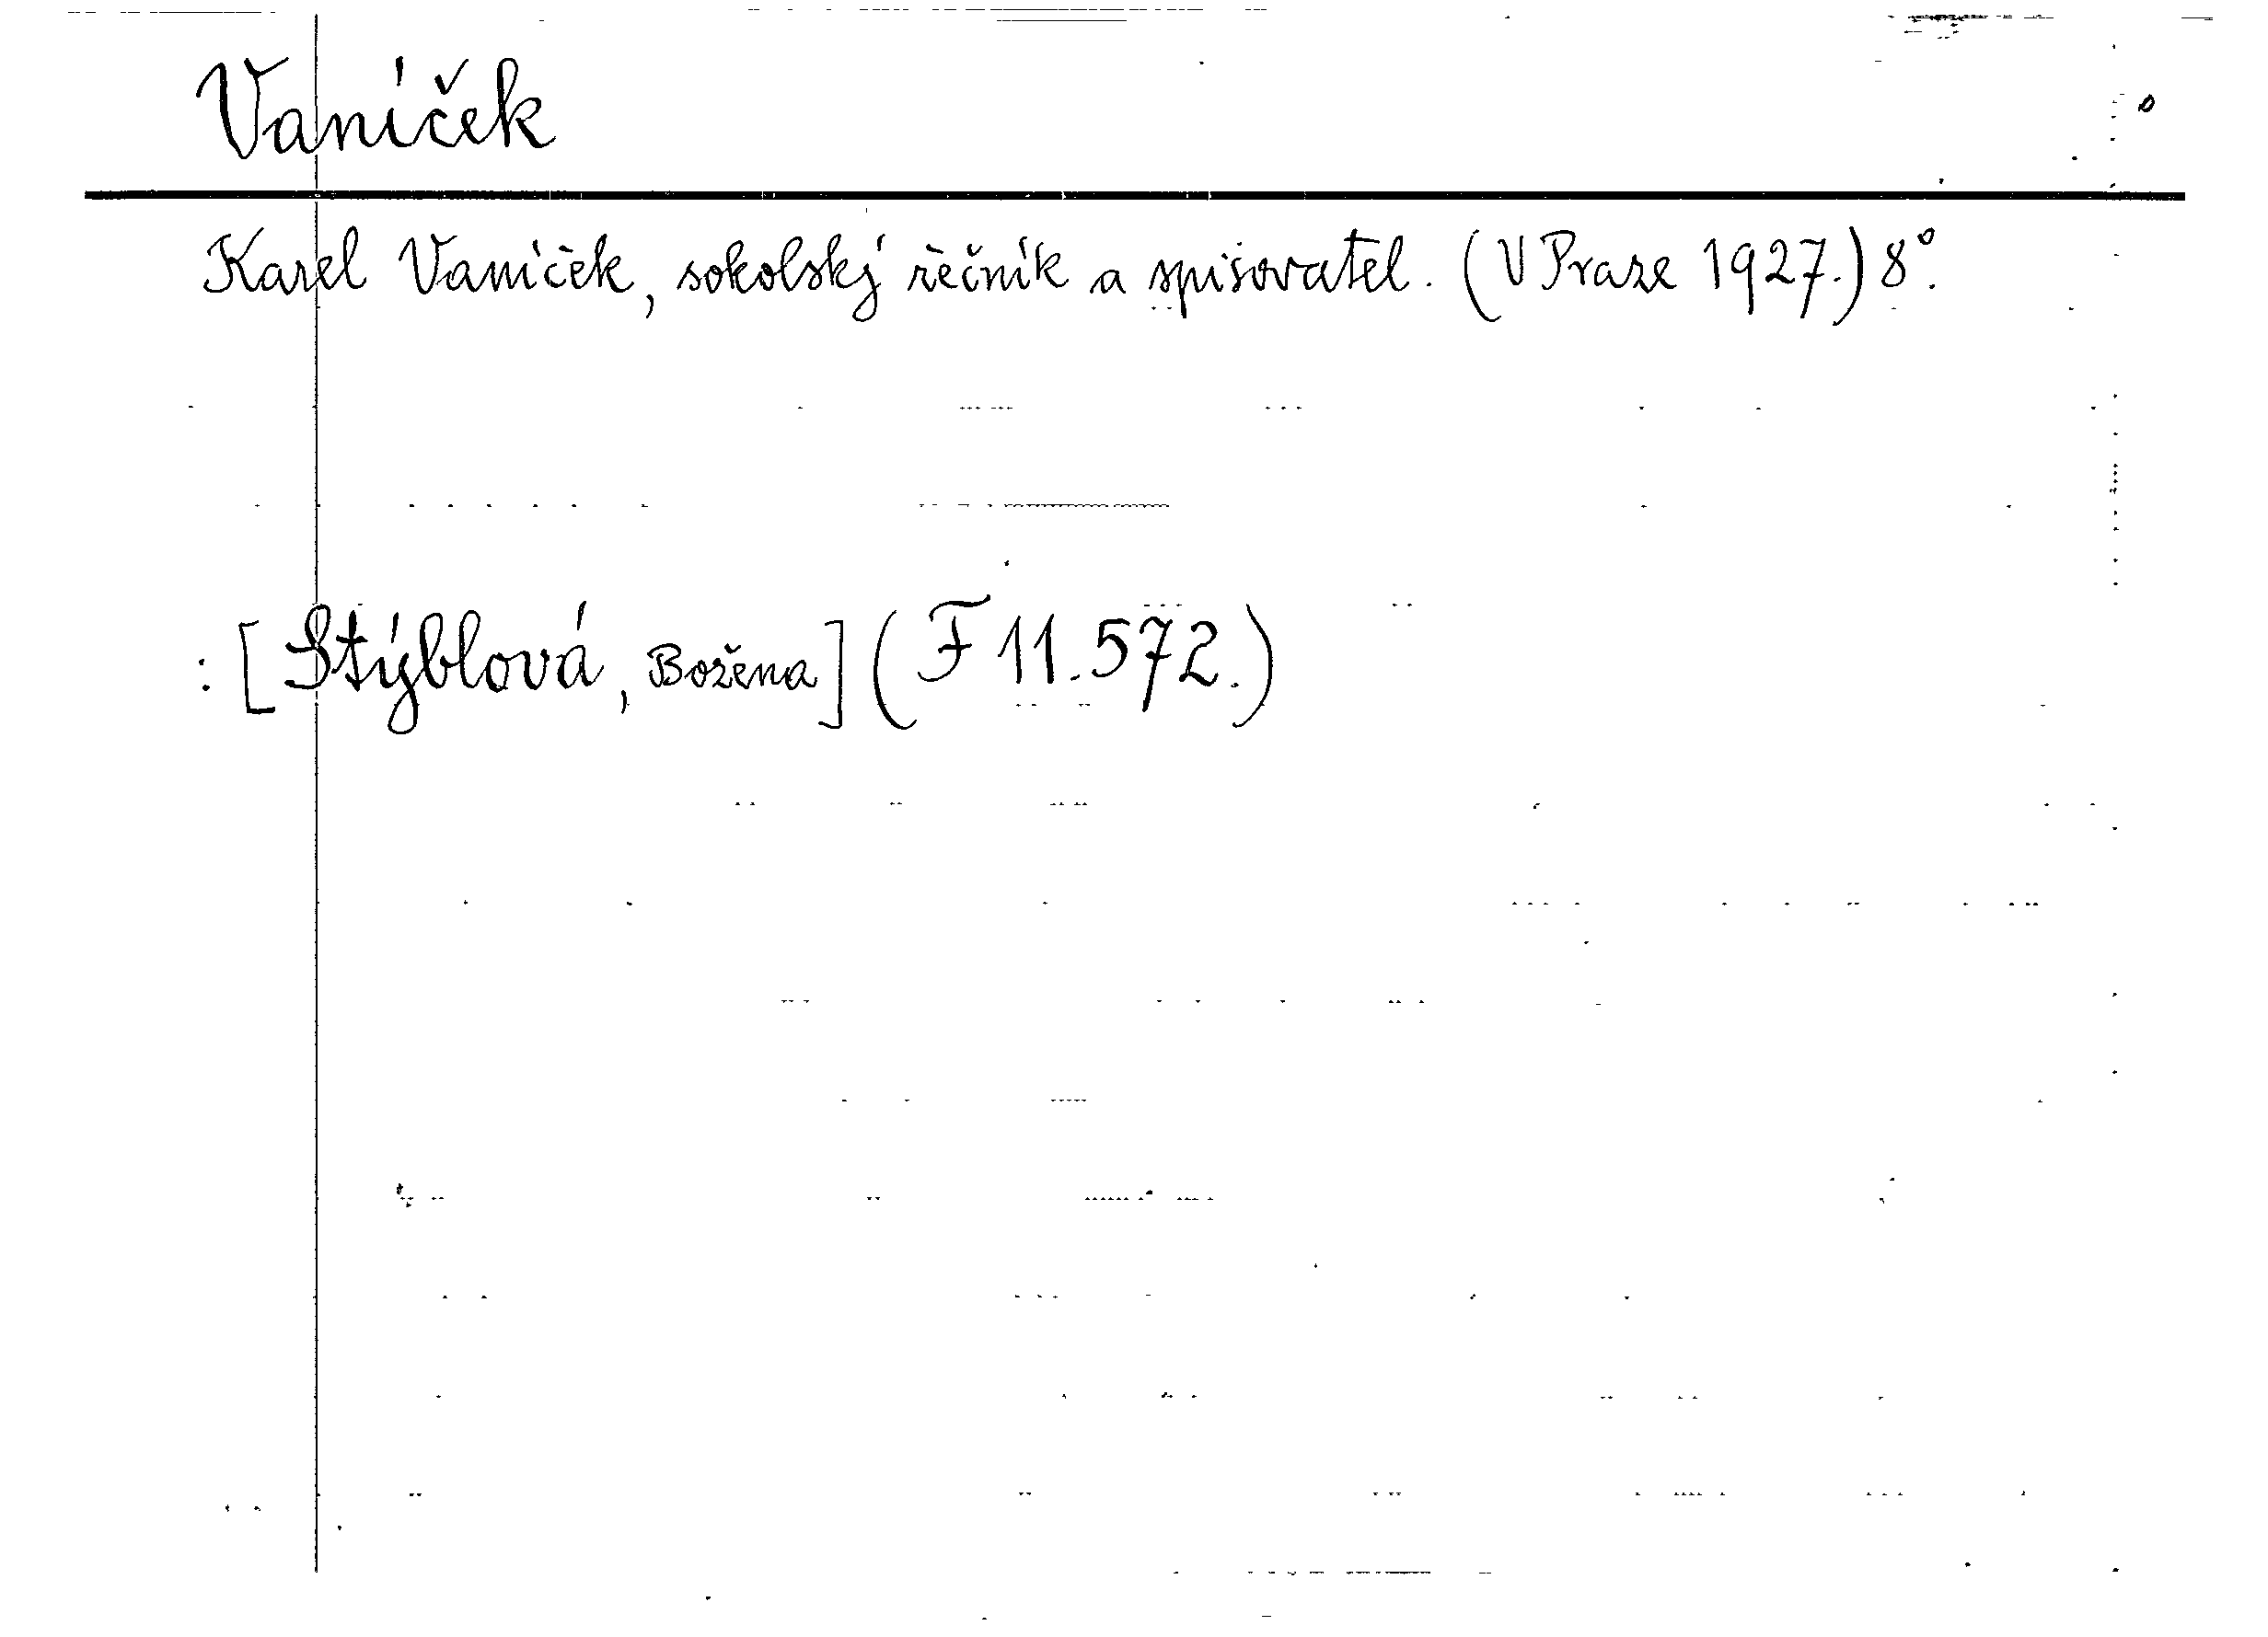 Vaníček
Karel Vaníček, sokolský řečník a spisovatel. (V Praze 1927.) 8°.
: [Stýblová, Božena] (F 11.572.)